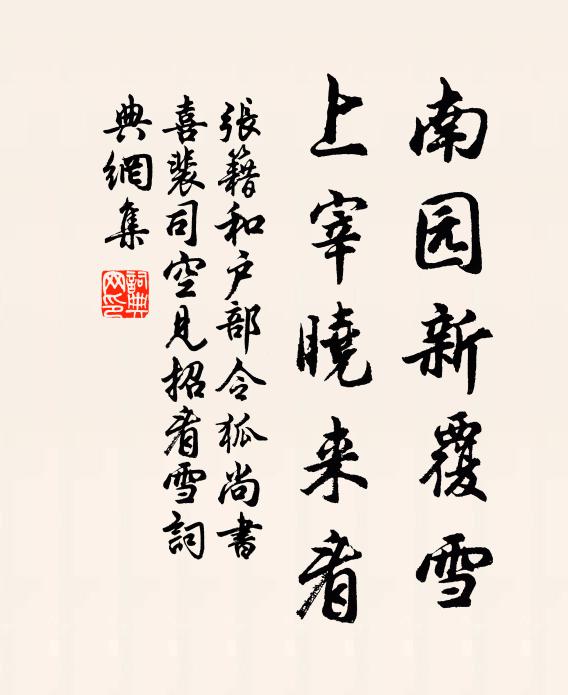 南园新覆雪
上宰曉来看
張籍和户部令狐尚書
喜裴司空見招看雪詞
典網集
詞典網印